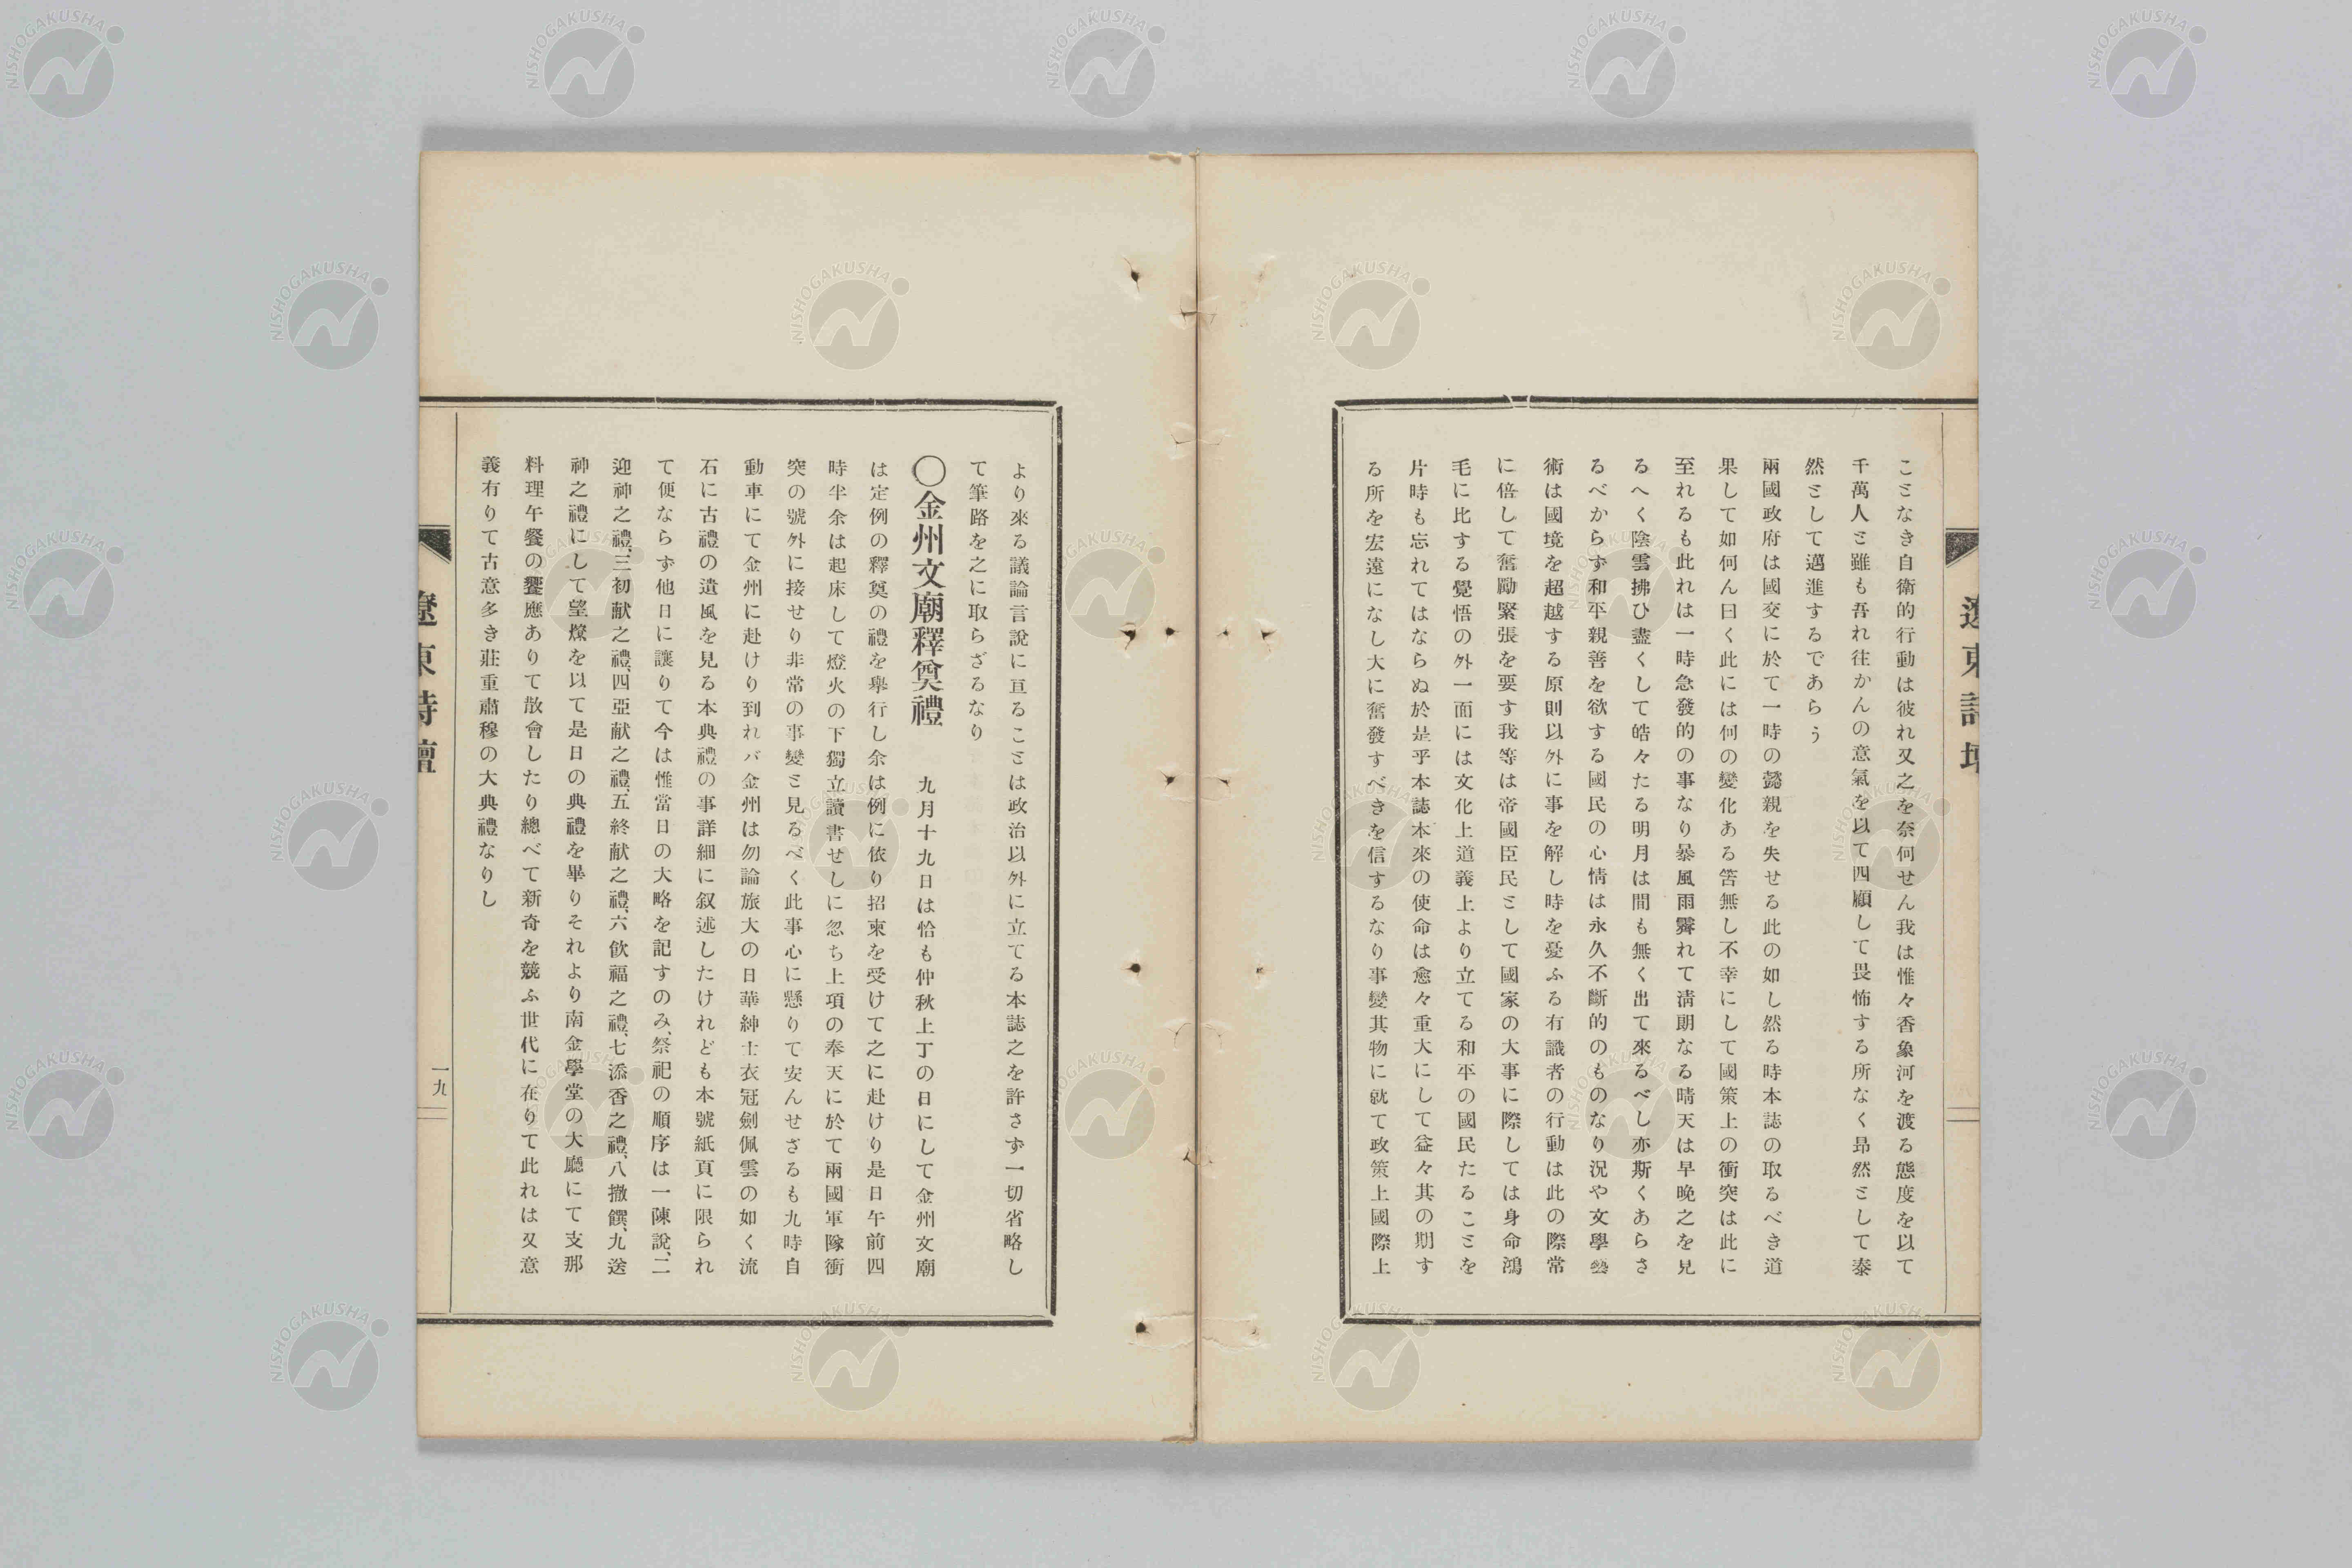 こ𪜈なき自衛的行動は彼れ又之を奈何せん我は惟々香象河を渡る態度を以て
千萬人𪜈雖も吾れ往かんの意氣を以て四顧して畏怖する所なく昂然𪜈して泰
然𪜈して邁進するであらう
兩國政府は國交に於て一時の懿親を失せる此の如し然る時本誌の取るべき道
果して如何ん曰く此には何の變化ある筈無し不幸にして國策上の衝突は此に
至れるも此れは一時急發的の事なり暴風雨霽れて淸朗なる晴天は早晩之を見
るへく陰雲拂ひ盡くして皓々たる明月は間も無く出て來るべし亦斯くあらさ
るべからず和平親善を欲する國民の心情は永久不斷的のものなり況や文學藝
術は國境を超越する原則以外に事を解し時を憂ふる有識者の行動は此の際常
に倍して奮勵緊張を要す我等は帝國臣民𪜈して國家の大事に際しては身命鴻
毛に比する覺悟の外一面には文化上道義上より立てる和平の國民たるこ𪜈を
片時も忘れてはならぬ於是乎本誌本來の使命は愈々重大にして益々其の期す
る所を宏遠になし大に奮發すべきを信するなり事變其物に就て政策上國際上
遼東詩壇
より來る議論言說に亘るこ𪜈は政治以外に立てる本誌之を許さず一切省略し
て筆路を之に取らざるなり
〇金州文廟釋奠禮 九月十九日は恰も仲秋上丁の日にして金州文廟
は定例の釋奠の禮を擧行し余は例に依り招柬を受けて之に赴けり是日午前四
時半余は起床して燈火の下獨立讀書せしに忽ち上項の奉天に於て兩國軍隊衝
突の號外に接せり非常の事變𪜈見るべく此事心に懸りて安んせざるも九時自
動車にて金州に赴けり到れバ金州は勿論旅大の日華紳士衣冠劍佩雲の如く流
石に古禮の遺風を見る本典禮の事詳細に叙述したけれども本號紙頁に限られ
て便ならず他日に讓りて今は惟當日の大略を記すのみ、祭祀の順序は一陳說、二
迎神之禮、三初献之禮、四亞献之禮、五終献之禮、六飮福之禮、七添香之禮、八撤饌、九送
神之禮にして望燎を以て是日の典禮を畢りそれより南金學堂の大廳にて支那
料理午餐の饗應ありて散會したり總べて新奇を競ふ世代に在りて此れは又意
義有りて古意多き莊重肅穆の大典禮なりし
遼東詩壇
一九